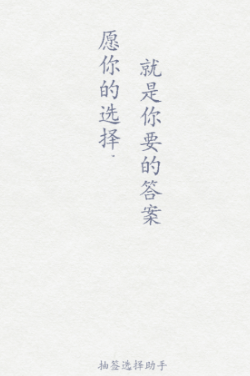 愿你的选择·
就是你要的答案
抽签选择助手